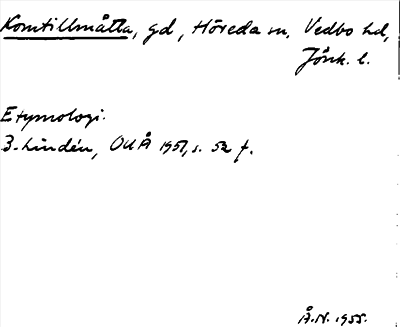 Komtillmåtta, gd, Höreda sn, Vedbo hd,
Jönk. l.
Etymologi.
B. Lindén, OUÅ 1951, s. 52 f.
Å.N. 1955.